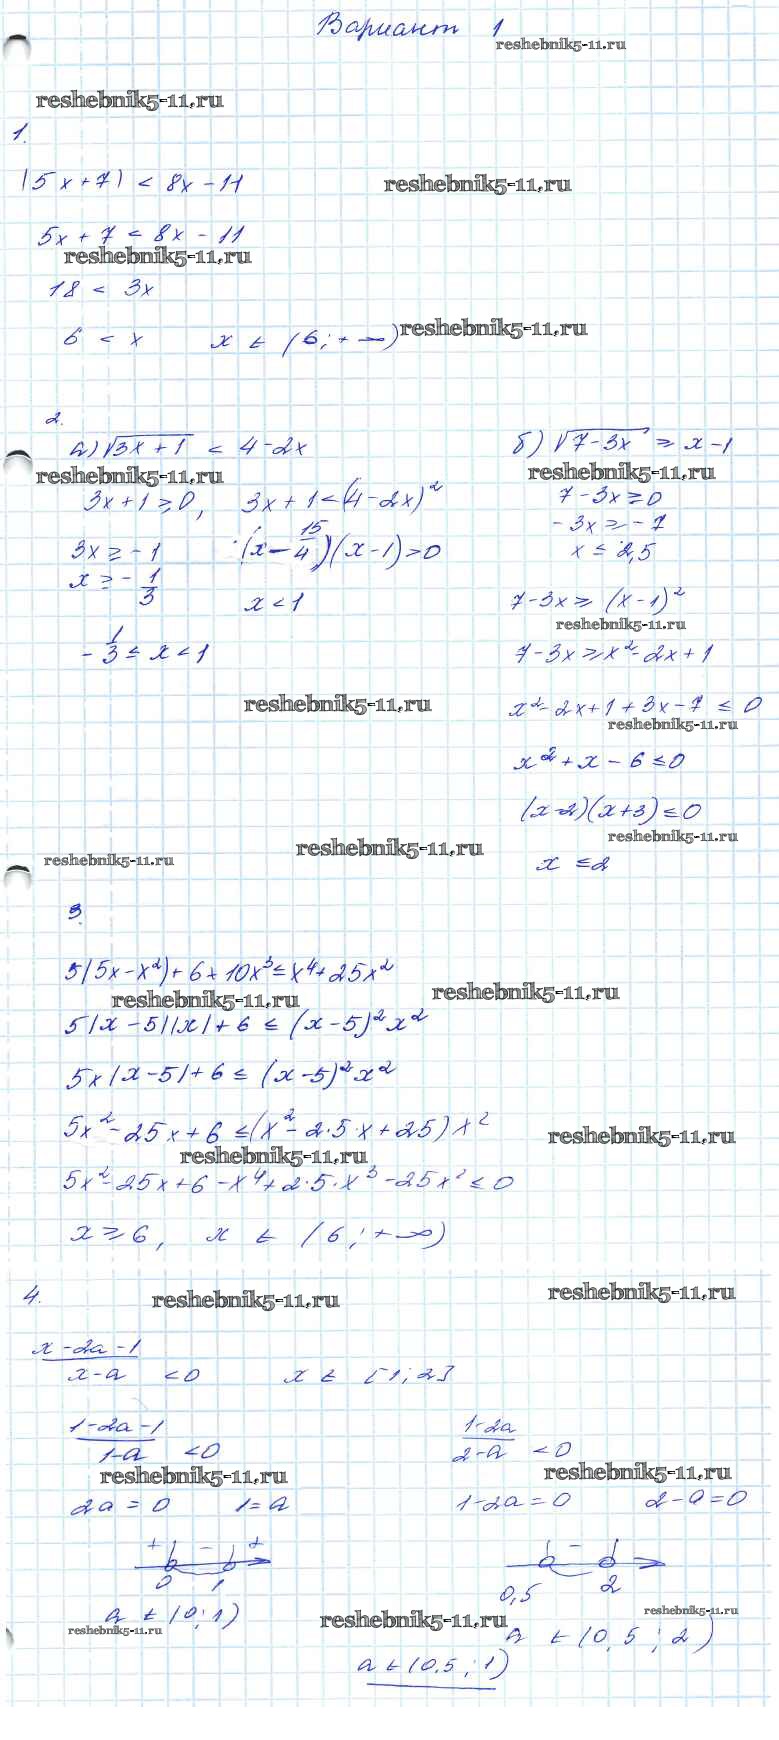 Вариант 1
reshebnik5-11.ru
reshebnik5-11.ru
1.
|5x+7| < 8x-11
reshebnik5-11.ru
5x+7 < 8x-11
reshebnik5-11.ru
18 < 3x
6 < x x ∈ (6; +∞)
reshebnik5-11.ru
2.
а) √3x+1 < 4-2x
reshebnik5-11.ru
3x+1≥0, 3x+1<(4-2x)²
3x≥-1 (x-15/4)(x-1)>0
x≥-1/3 x<1
-1/3≤x<1
reshebnik5-11.ru
б) √7-3x ≥ x-1
reshebnik5-11.ru
7-3x≥0
-3x≥-7
x≤2,5
7-3x≥(x-1)²
reshebnik5-11.ru
7-3x≥x²-2x+1
x²-2x+1+3x-7≤0
reshebnik5-11.ru
x²+x-6≤0
(x-2)(x+3)≤0
reshebnik5-11.ru
x≤2
reshebnik5-11.ru
reshebnik5-11.ru
3.
5|5x-x²|+6+10x³≤x⁴+25x²
reshebnik5-11.ru
reshebnik5-11.ru
5|x-5||x|+6≤(x-5)²x²
5x|x-5|+6≤(x-5)²x²
5x²-25x+6≤(x²-2·5·x+25)x²
reshebnik5-11.ru
reshebnik5-11.ru
5x²-25x+6-x⁴+2·5·x³-25x²≤0
x≥6, x ∈ (6;+∞)
4.
reshebnik5-11.ru
reshebnik5-11.ru
x-2a-1
x-a <0 x ∈ [1;2]
1-2a-1
1-a <0
reshebnik5-11.ru
2a=0 1=a
+ - +
0 1
a ∈ (0;1)
reshebnik5-11.ru
1-2a
2-a <0
reshebnik5-11.ru
1-2a=0 2-a=0
-
0,5 2
reshebnik5-11.ru
reshebnik5-11.ru
a ∈ (0,5; 2)
a ∈ (0,5; 1)